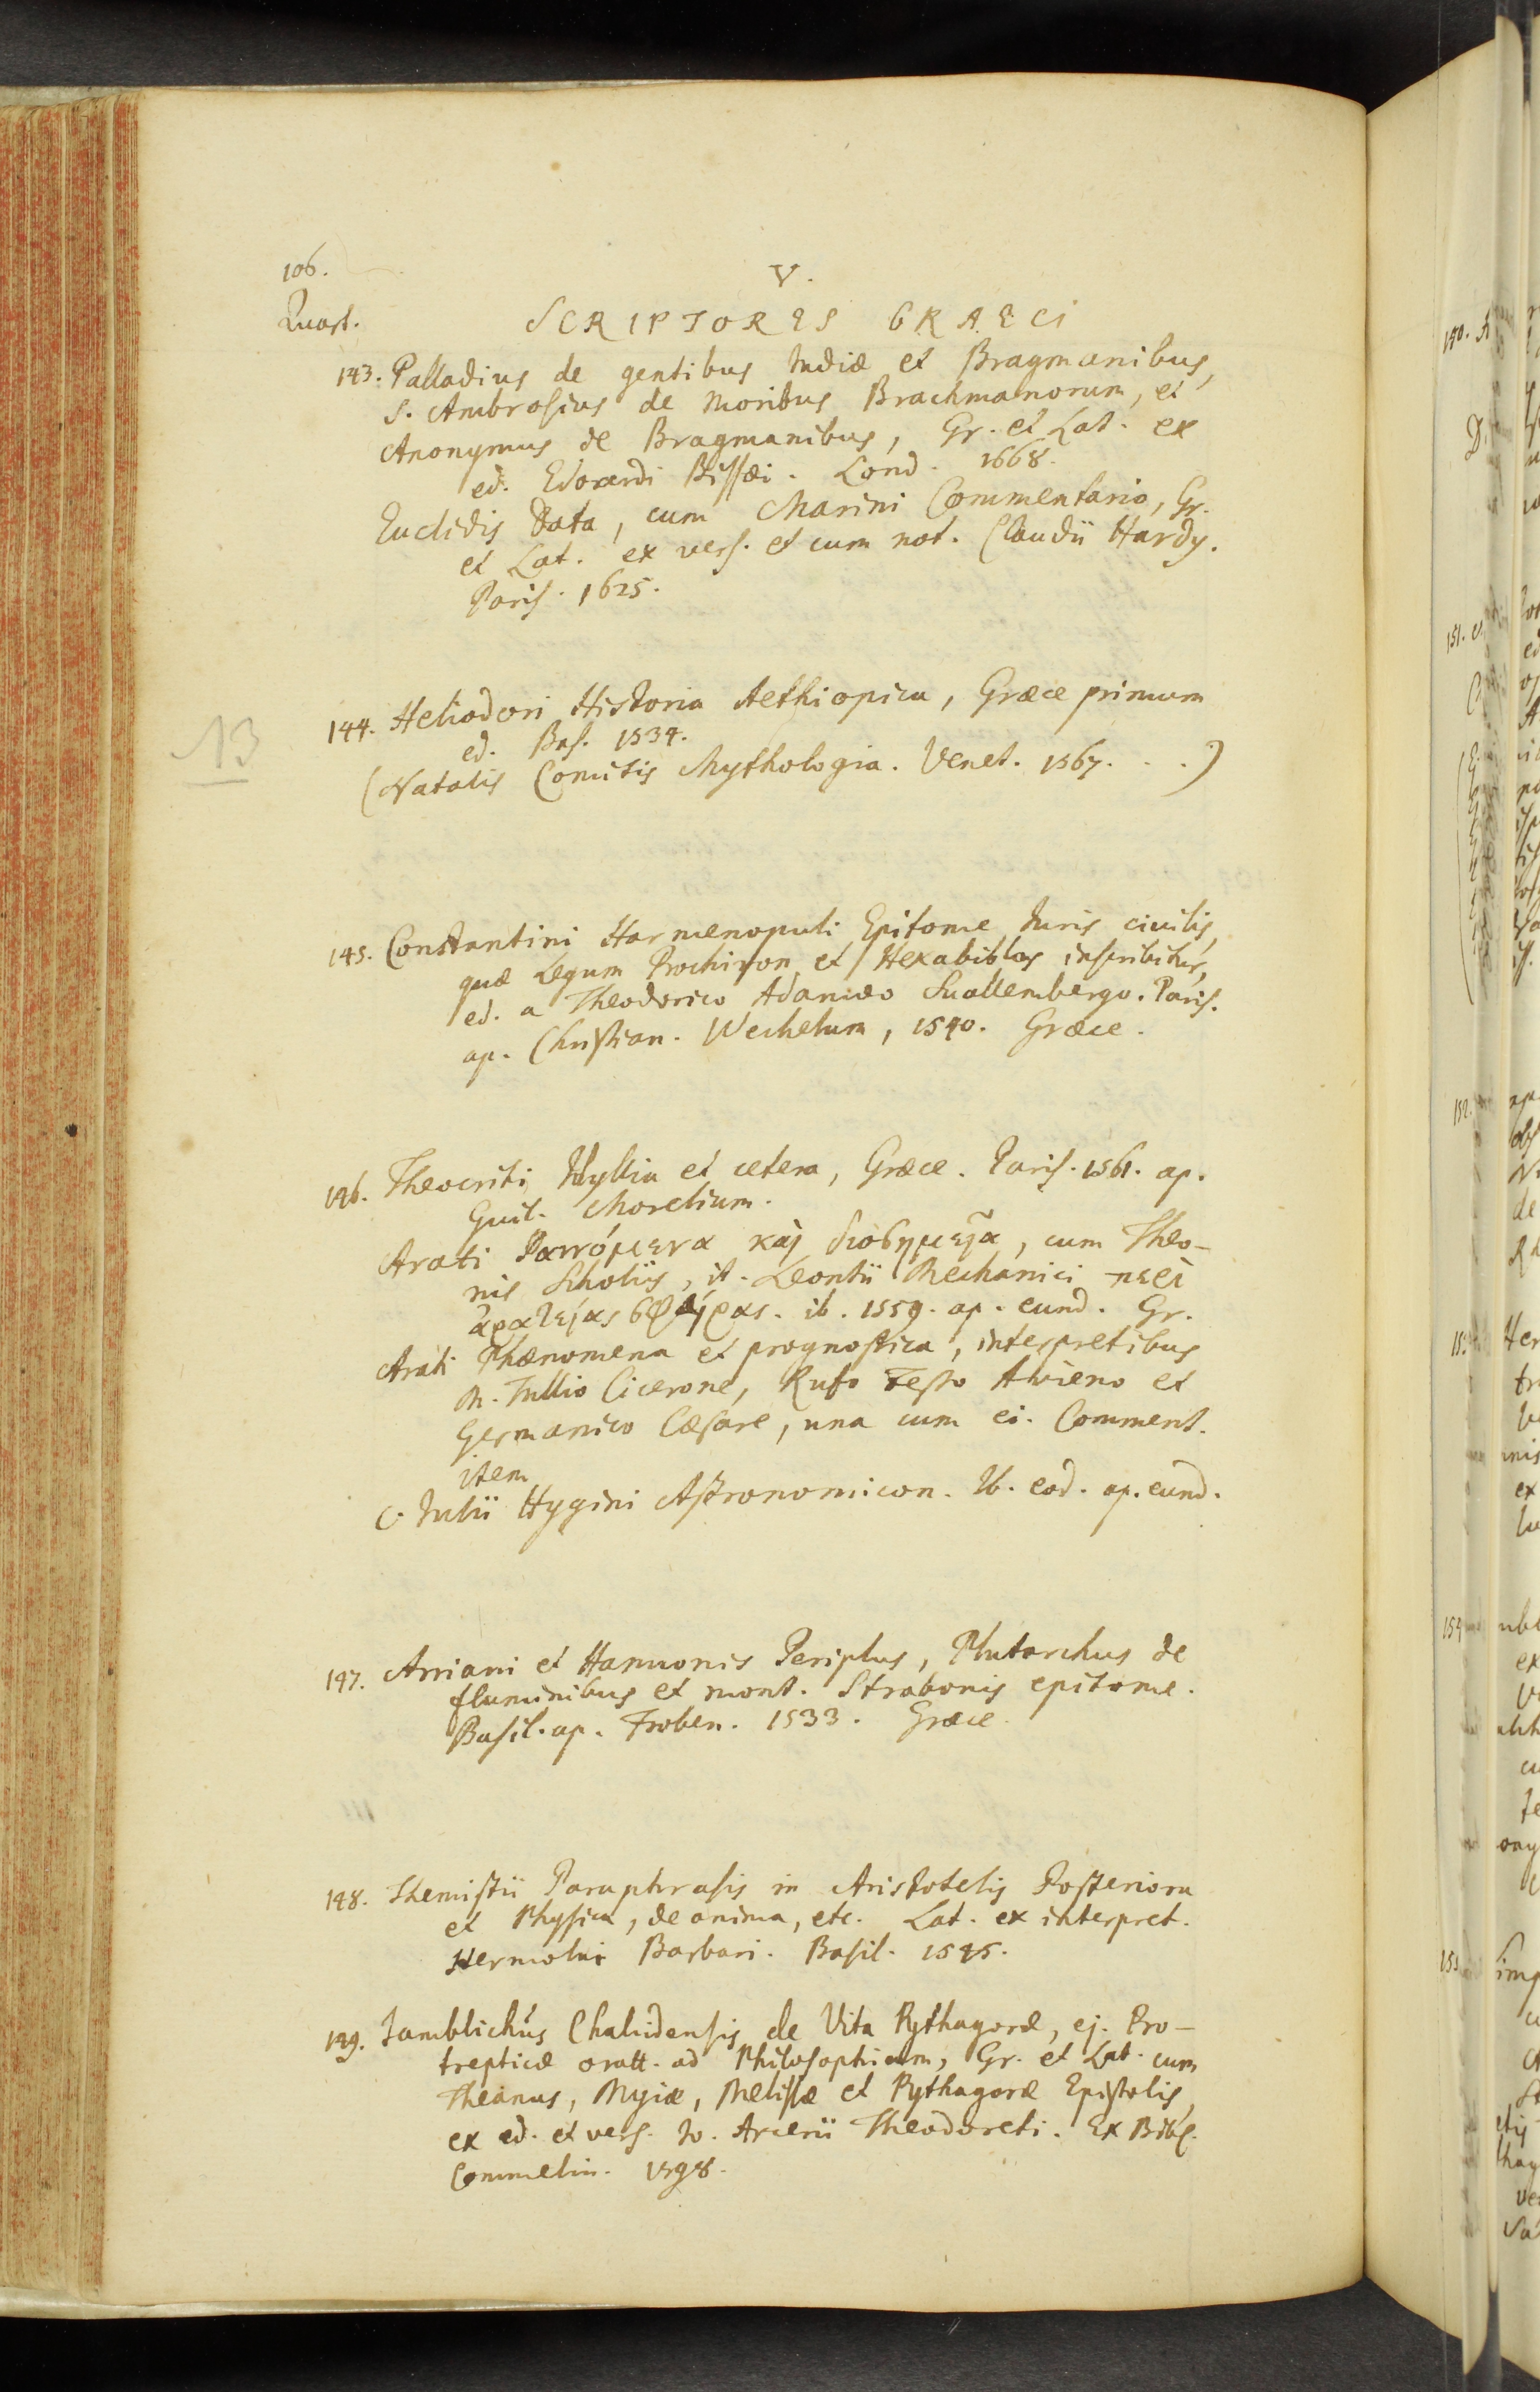 106.
V.
Quart.
SCRIPTORES GRAECI
143. Palladius de gentibus Indiæ et Bragmanibus,
S. Ambrosius de Moribus Brachmanorum, et
Anonymus de Bragmanibus, Gr. et Lat. ex
ed. Edoardi Bissæi. Lond. 1668.
Euclidis Data, cum Marini Commentario, Gr.
et Lat. ex vers. et cum not. Claudii Hardy.
Paris. 1625.
144. Heliodori Historia Aethiopica, Græce primum
ed. Bas. 1534.
(Natalis Comitis Mythologia. Venet. 1567. . .)
13
145. Constantini Harmenopuli Epitome Juris civilis,
quæ Legum Prochiron et Hexabiblos inscribitur,
ed. a Theodorico Adamæo Suallembergo. Paris.
ap. Christian. Wechelum, 1540. Græce.
146. Theocriti Idyllia et cetera, Græce. Paris. 1561. ap.
Guil. Morelium.
Arati Φαινόμενα καὶ διοσημεῖα, cum Theo-
nis Scholiis, it. Leontii Mechanici περὶ
ἀρατείας σφαίρας. ib. 1559. ap. eund. Gr.
Arati Phænomena et prognostica, interpretibus
M. Tullio Cicerone, Rufo Festo Avieno et
Germanico Cæsare, una cum ei. Comment.
item
C. Julii Hygini Astronomicon. Ib. eod. ap. eund.
147. Arriani et Hannonis Periplus, Plutarchus de
fluminibus et mont. Strabonis epitome.
Basil. ap. Froben. 1533. Græce.
148. Themistii Paraphrasis in Aristotelis Posteriora
et Physica, de anima, etc. Lat. ex interpret.
Hermolai Barbari. Basil. 1545.
149. Jamblichus Chalcidensis de Vita Pythagoræ, ej. Pro-
trepticæ oratt. ad Philosophiam, Gr. et Lat. cum
Theanus, Myiæ, Melissæ et Pythagoræ Epistolis,
ex ed. et vers. Jo. Arcerii Theodoreti. Ex Bibl.
Commelin. 1598.